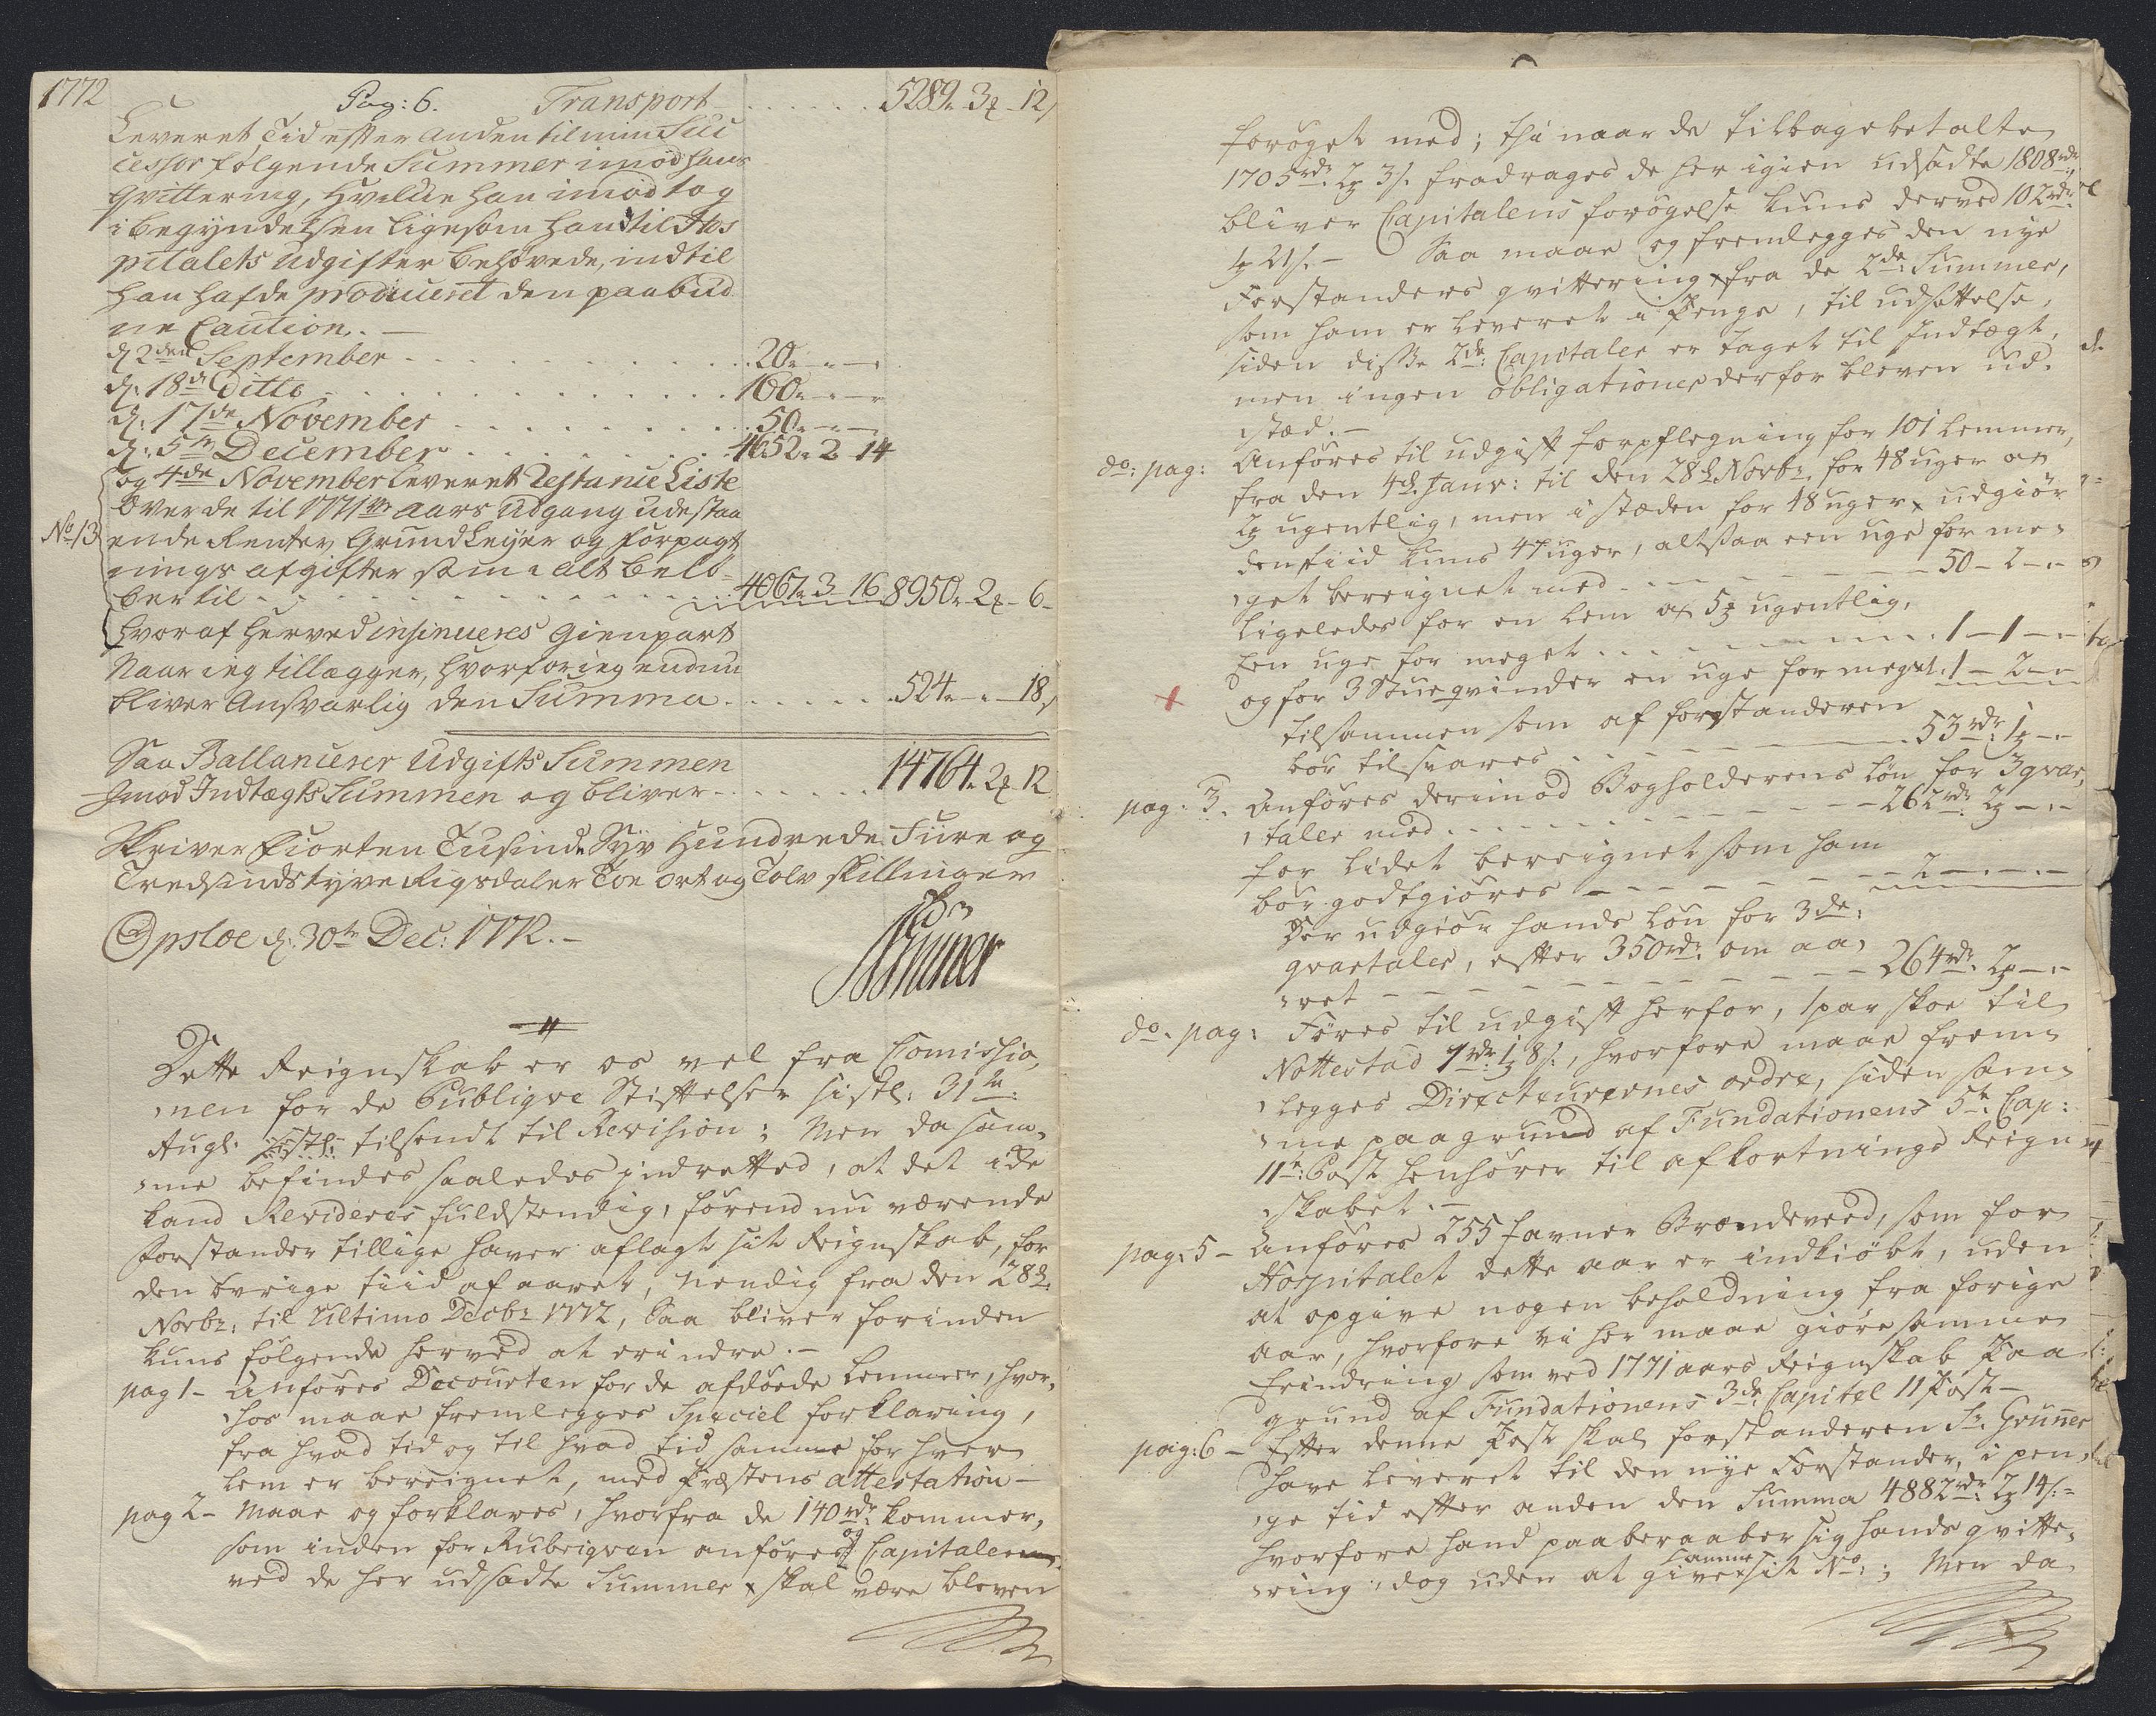 1772
Pag: 6. Transport - . . . . . . 5289. 3ꝛ - 12
Leveret Tid efter anden til min Suc
cessor følgende Summer imod hans
Qvittering, hvilke han imodtog
i begyndelsen ligesom han til Hos
pitalets Udgifter behøvede, indtil
han hafde produceret den paabud
ne Caution. -
d. 2den September - . . . . . . . 20. - . -
d: 18de Ditto . . . . . . . . . 100. - . -
d: 17de November . . . . . . . 50. - . -
d: 5te December . . . . . . . 4652. 2 14
og 4de November leveret Restance Liste
over de til 1771 aars Udgang udestaa
No 13 ende Renter Grundleyer og forpagt
nings afgifter som i alt belø=
ber til - - . . . . . . . 4067. 3 16 8950. 2ꝛ - 6 -
hvoraf herved insinueres Gienpart
Naar ieg tillægger, hvorfor ieg endnu
bliver Ansvarlig den Summa . . . . . . . 524. - . - 18
Saa Ballancerer Udgifts Summen
Imod Indtægts Summen og bliver - . . . . . . 14764. 2ꝛ 12
Skriver Fiorten Tusinde Syv Hundrede Fiire og
Tredsindstyve Rigsdaler Toe Ort og Tolv skillinger
Opsloe d: 30te Dec: 1772. -
Gruner
Dette Reignskab er os vel fra Comissio,
,nen for de Publiqve Stiftelser sistl: 31te:
Augl. tilsendt til Revision; Men da sam,
,me befindes saaledes indretted, at det icke
kand Revideres fuldstendig, førend nu værende
Forstander tillige haver aflagt sit Reignskab, for
den øvrige tiid af aaret, nemlig fra den 28de
Novbr: til Ultimo Decbr 1772, Saa bliver forinden
kuns følgende herved at erindre. -
pag 1 - Anføres Decourten for de afdøede Lemmer, hvor,
,hos maae fremlegges Speciel forklaring,
fra hvad tid og til hvad tid samme for hver
Lem er bereignet, med Præstens attestation -
pag 2 - Maae og forklares, hvorfra de 140rdr kommer,
som inden for Rubriqven anføres og Capitalerne
ved de her udsadte Summer skal være bleven
forøget med; thi naar de tilbagebetalte
1705rdr. 2ꝛ 3s. fradrages de her igien udsadte 1808rdr,
bliver Capitalens forøgelse kuns derved 102rdr.
1ꝛ 21s. - Saa maae og fremlegges den nye
Forstanders qvittering fra de 2de: Summer,
som ham er leveret i Penge, til udsettelse,
siden disse 2de: Capitaler er taget til Indtægt,
men ingen obligationer derfor bleven ud.
,sted. -
do: pag: Anføres til udgift forpflegning for 101 Lemmer,
fra den 4de Janv: til den 28de Novbr. for 48 uger a
2ꝛ ugentlig, men i steden for 48 uger, udgiør
den tiid kuns 47 uger, altsaa een uge for me,
,get bereignet med - - - - - - - 50 - 2 - . -
Ligeledes for en Lem a 5ꝛ ugentlig,
Een uge for meget . . . . . . . . . 1 - 1 - . -
og for 3 Stueqvinder en uge for meget . 1 - 2 - . -
tilsammen som af forstanderen
bør tilsvares . . - - - - - - - 53rdr 1ꝛ - . -
pag. 3. Anføres derimod Bogholderens Løn for 3 qvar,
,taler med . . . - - - - - - 262rdr 2ꝛ - . -
for lidet bereignet som ham
bør godtgiøres - - - - - - - 2 - . - . -
Der udgiør hands Løn for 3de:
qvartaler, efter 350rdr. om aa,
,ret - - - - - - - - - 264rdr. 2ꝛ - . -
do. pag: Føres til udgift herfor, 1 par skoe til
Nottestad 1rdr. 1ꝛ 8s., hvorfore maae frem,
,legges Directeurernes ordre, siden sam,
,me paa grund af Fundationens 5te: Cap:
11te: Post henhører til afkortnings Reign
,skabet. -
pag: 5 - Anføres 255 Favner Brændeveed, som for
Hospitalet dette aar er indkiøbt, uden
at opgive nogen beholdning fra forige
aar, hvorfore vi her maae giøre samme
Erindring som ved 1771 aars Reignskab paa
grund af Fundationens 3de. Capitel 11 Post -
pag: 6 - Efter denne Post skal forstanderen Sr. Gruner
have leveret til den nye Forstander, i pen,
,ge tid efter anden den Summa 4882rdr. 2ꝛ 14s. =
hvorfore hand paaberaaber sig hands qvitte,
,ring, dog uden at give samme sit No.; Men da